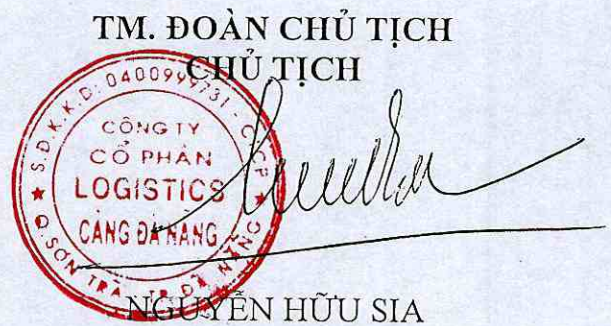 TM. ĐOÀN CHỦ TỊCH
CHỦ TỊCH
S.Đ.K.K.D: 0400999731 - C.T.C.P
CÔNG TY
CỔ PHẦN
LOGISTICS
CẢNG ĐÀ NẴNG
Q.SƠN TRÀ - TP. ĐÀ NẴNG
NGUYỄN HỮU SIA